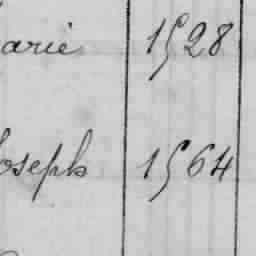 arie 1528
oseph 1564